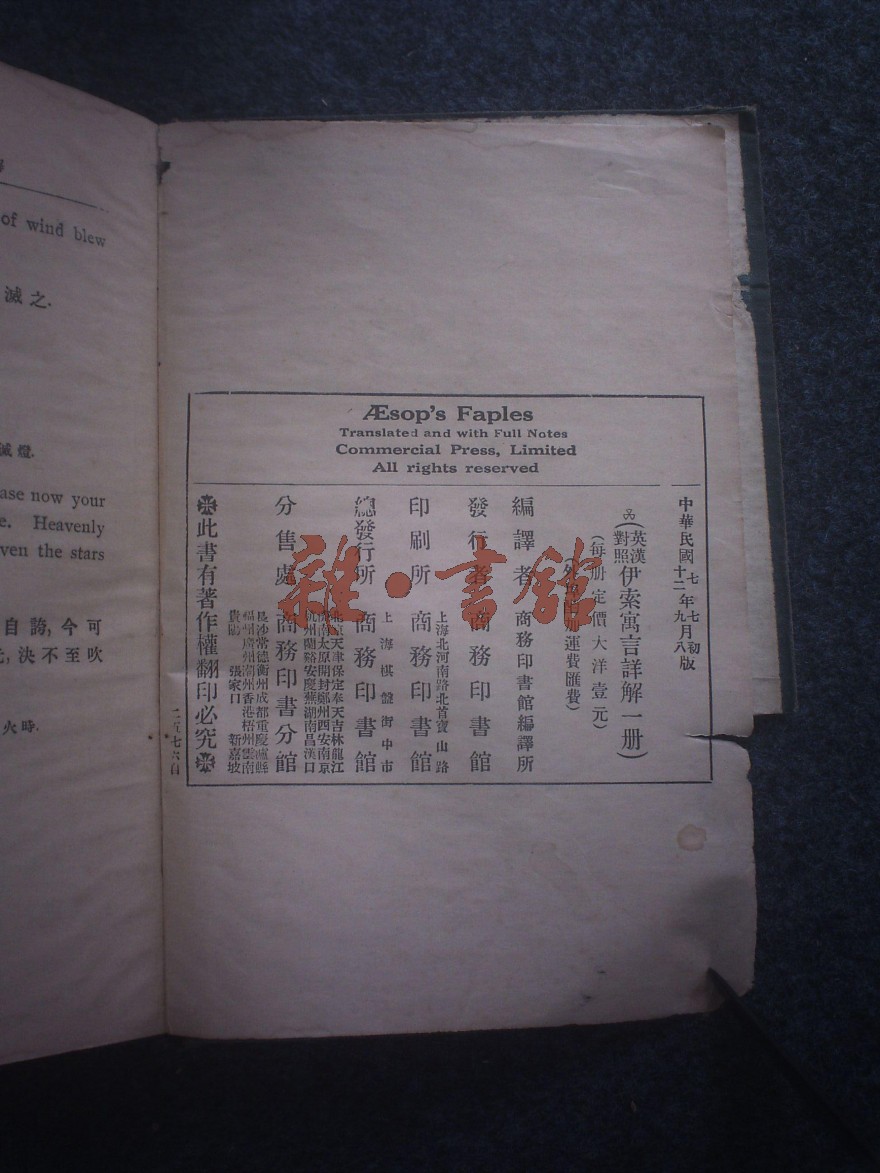 of wind blew
滅之.
滅燈.
ase now your
e. Heavenly
ven the stars
自誇,今可
決不至吹
火時.
Æsop's Faples
Translated and with Full Notes
Commercial Press, Limited
All rights reserved
中華民國
七年七
初
十二年九月八版
(英漢對照伊索寓言詳解一册)
(每册定價大洋壹元)
加運費匯費)
編譯者 商務印書館編譯所
發行者 商務印書館
印刷所 上海北河南路北首寶山路 商務印書館
總發行所 上海棋盤街中市 商務印書館
分售處 商務印書分館
北京天津保定奉天吉林龍江
濟南太原開封鄭州西安南京
杭州蘭谿安慶蕪湖南昌漢口
長沙常德衡州成都重慶瀘縣
福州廣州潮州香港梧州雲南
貴陽 張家口 新嘉坡
此書有著作權翻印必究
二五七六自
雜·書館